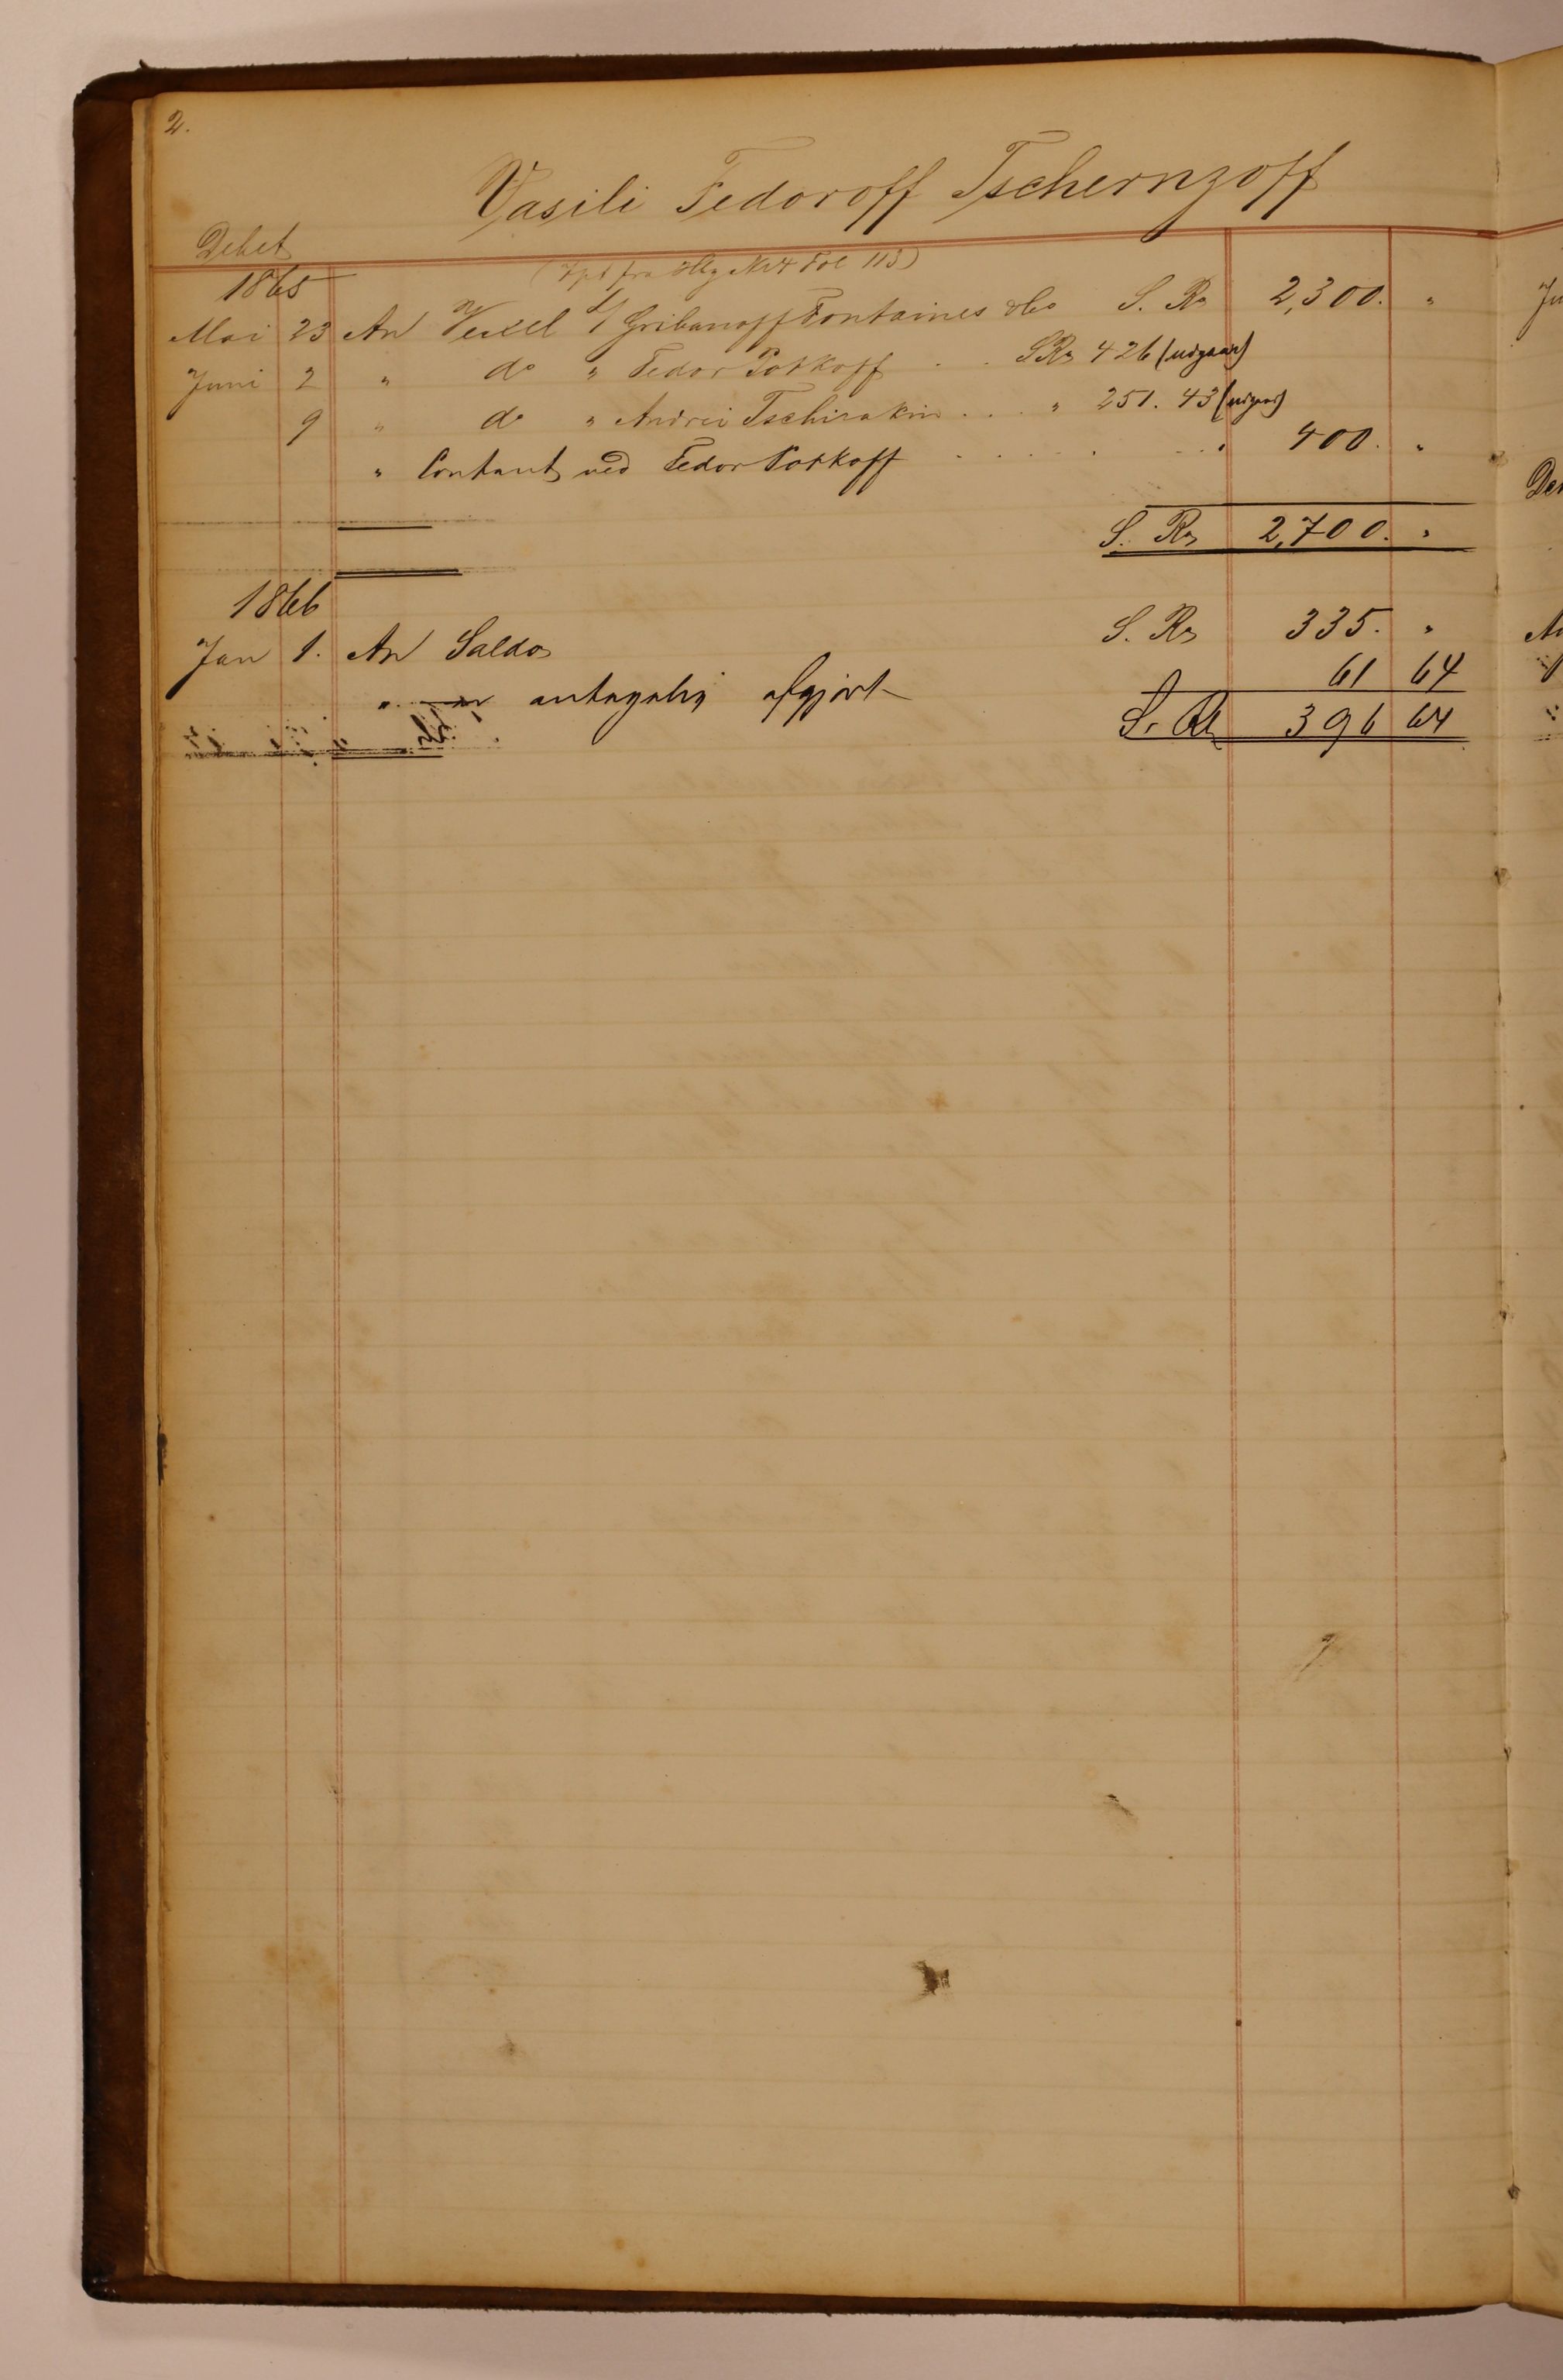 2.
Vasili Fedoroff Tschernzoff
Debet
1865
fra Nr 4 Fol 113)
Mai 23 An Vexel s/ Gribanoff Fontaines &Co S. Rs 2,300. "
Juni 2 " do " Fedor Potkoff . . SRs 426 (udgaar)
9 " do " Andrei Tschirakin . . . " 251. 43 (udgaar)
" Contant ved Fedor Potkoff . . . . . . . " 400. "
S. Rs 2,700. "
1866
Jan 1. An Saldo S. Rs 335. "
" antagelig afgjort 61 64
S. Rb 396 64